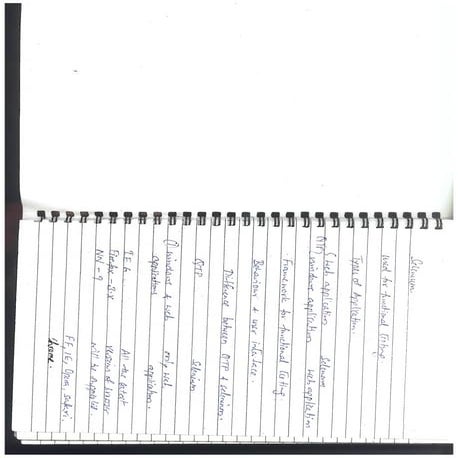 Selenium
Used for functional Testing.
Types of Application.
QTP { Web application Selenium
Windows application Web application
Framework for functional Testing.
Behaviour & user interface.
Difference between QTP & Selenium.
QTP Selenium
1) Windows & web only web
applications application.
IE 6 All the latest
Firefox - 3.x version of browser
NN - 9 will be supported.
FF, IE, Opera, Safari.